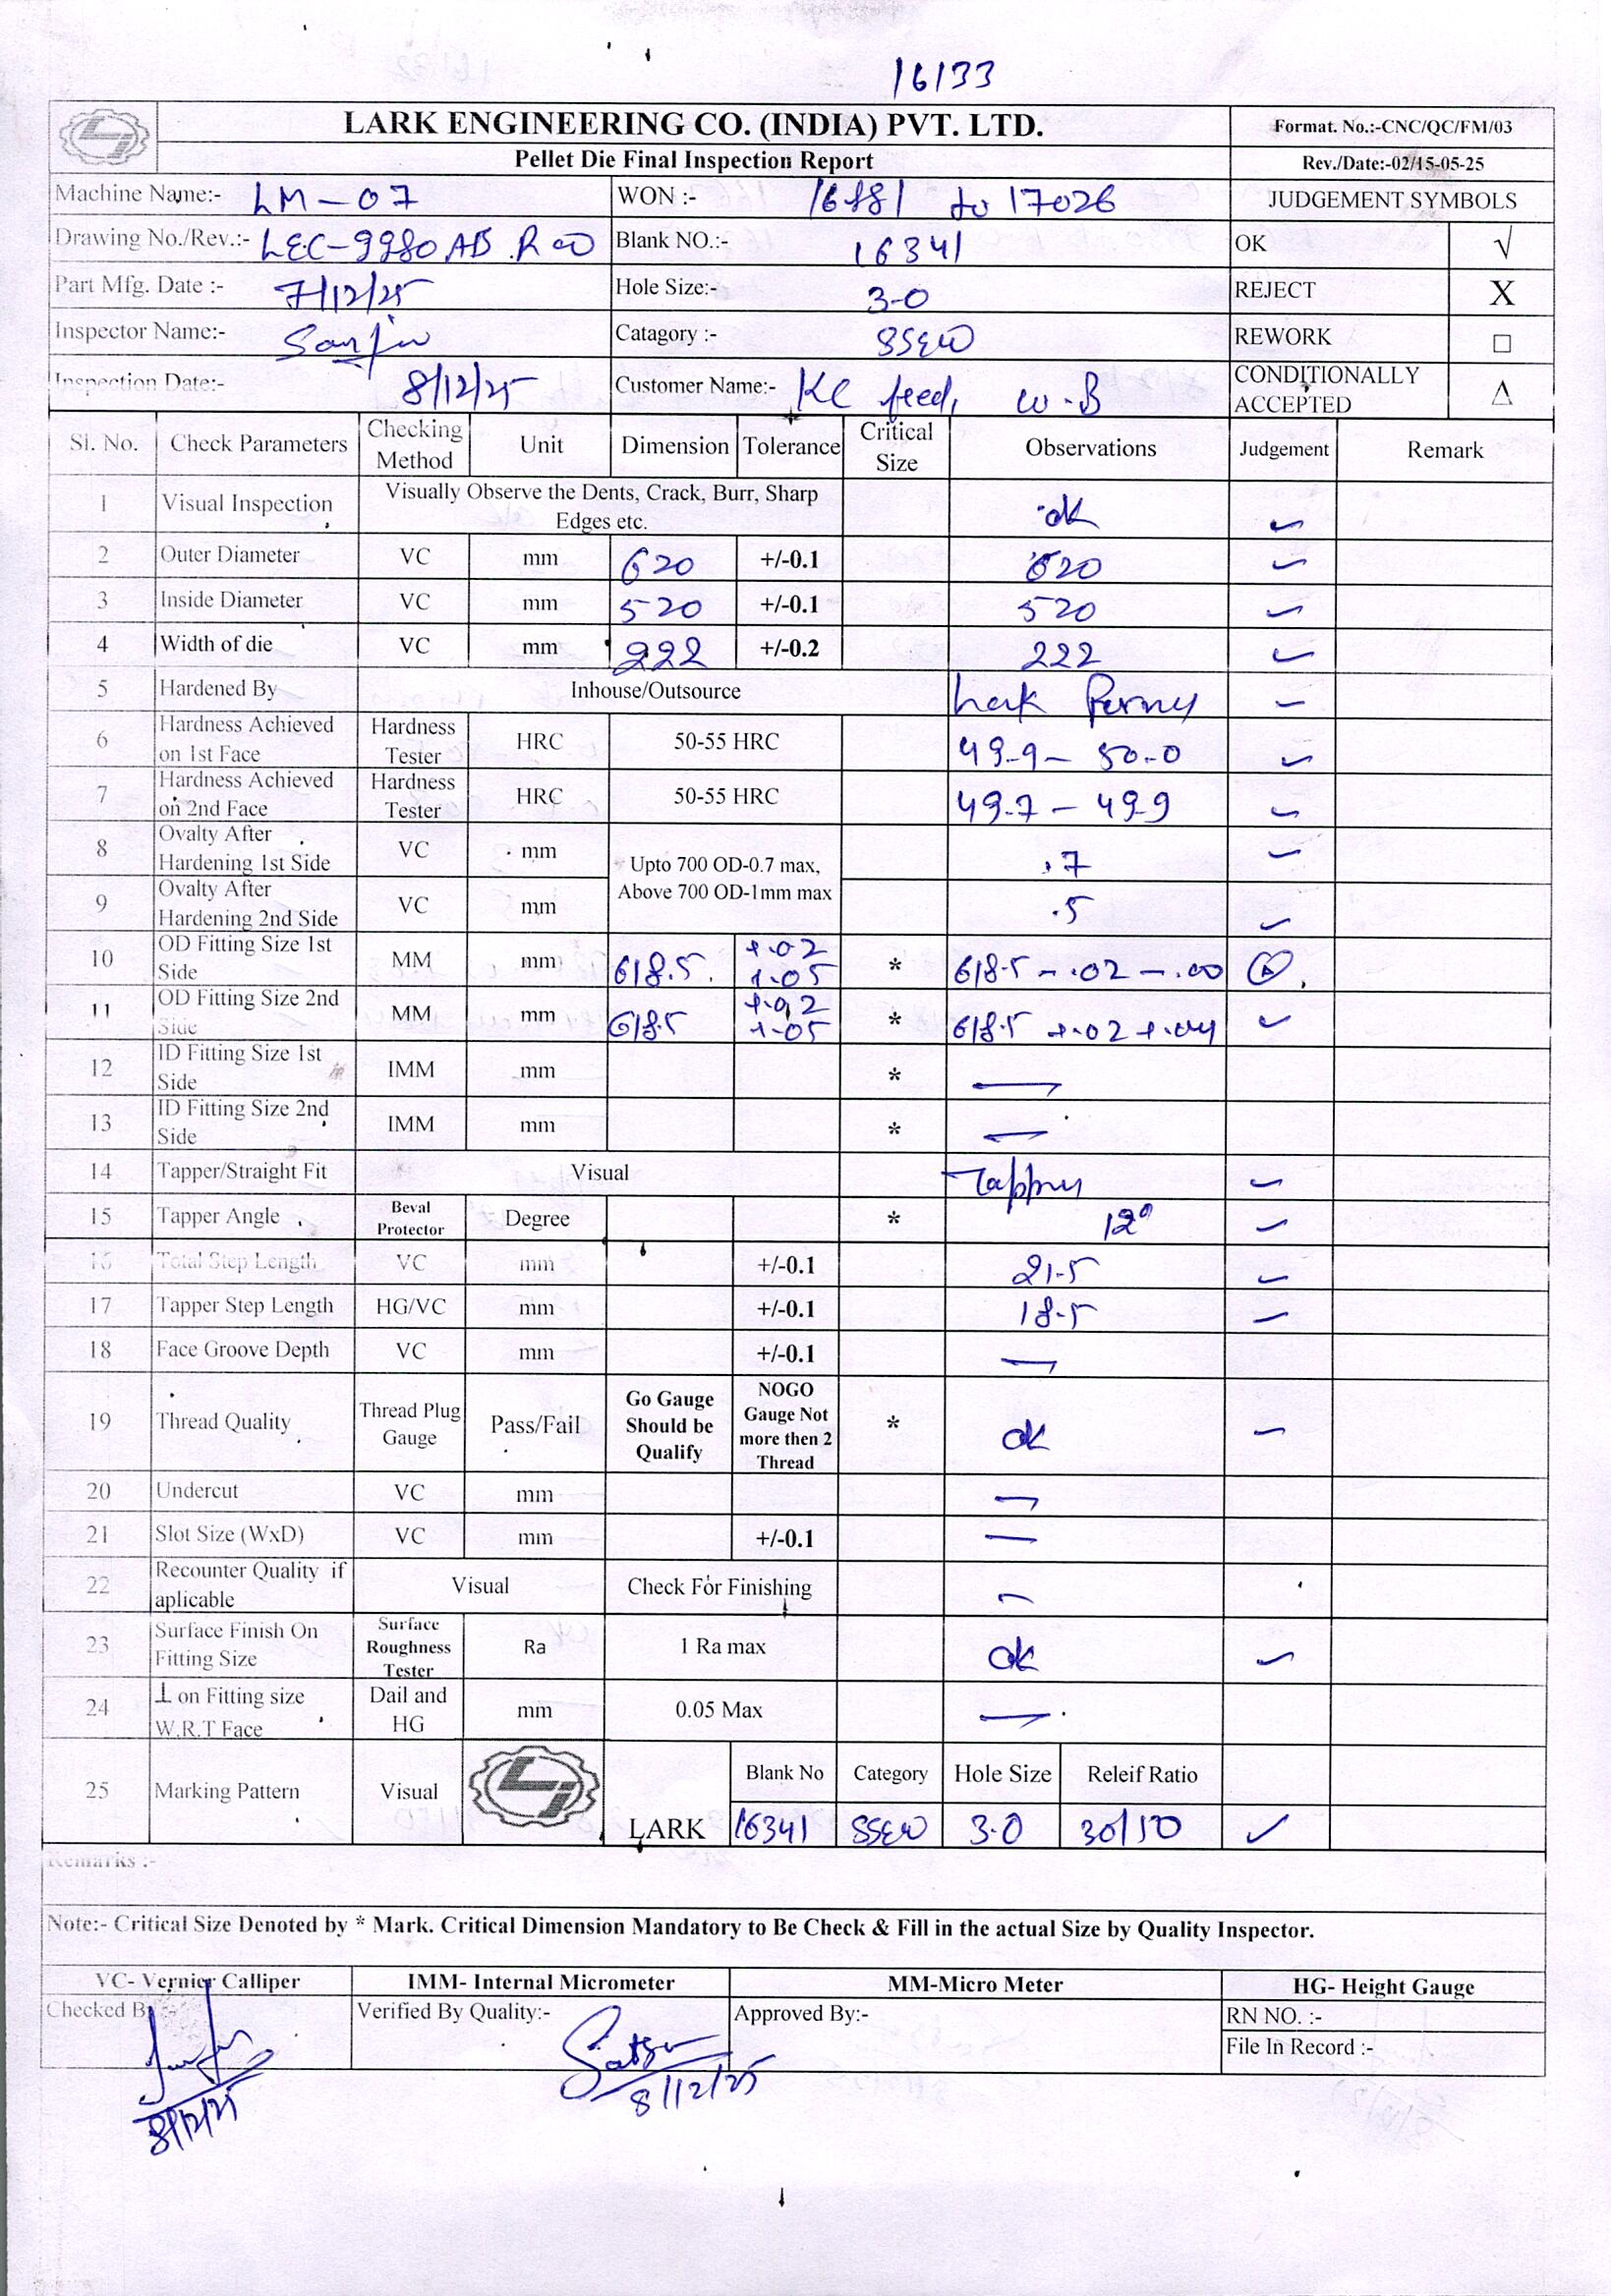 16133
LARK ENGINEERING CO. (INDIA) PVT. LTD.
Format. No.:-CNC/QC/FM/03
Pellet Die Final Inspection Report
Rev./Date:-02/15-05-25
Machine Name:- LM-07 WON :- 16881 to 17026 JUDGEMENT SYMBOLS
Drawing No./Rev.:- LEC-9980 AB R00 Blank NO.:- 16341 OK √
Part Mfg. Date :- 7/12/25 Hole Size:- 3-0 REJECT X
Inspector Name:- Catagory :- SSEW REWORK □
Inspection Date:- 8/12/25 Customer Name:- KC feed, W-B CONDITIONALLY ACCEPTED Δ
Sl. No. Check Parameters Checking Method Unit Dimension Tolerance Critical Size Observations Judgement Remark
1 Visual Inspection Visually Observe the Dents, Crack, Burr, Sharp Edges etc. ok ✓
2 Outer Diameter VC mm 620 +/-0.1 620 ✓
3 Inside Diameter VC mm 520 +/-0.1 520 ✓
4 Width of die VC mm 222 +/-0.2 222 ✓
5 Hardened By Inhouse/Outsource Lark ✓
6 Hardness Achieved on 1st Face Hardness Tester HRC 50-55 HRC 49.9 - 50.0 ✓
7 Hardness Achieved on 2nd Face Hardness Tester HRC 50-55 HRC 49.7 - 49.9 ✓
8 Ovalty After Hardening 1st Side VC mm Upto 700 OD-0.7 max, Above 700 OD-1mm max .7 ✓
9 Ovalty After Hardening 2nd Side VC mm .5 ✓
10 OD Fitting Size 1st Side MM mm 618.5 +.02 +.05 * 618.5 -.02 -.00
11 OD Fitting Size 2nd Side MM mm 618.5 +.02 +.05 * 618.5 +.02 +.04 ✓
12 ID Fitting Size 1st Side IMM mm * —
13 ID Fitting Size 2nd Side IMM mm * —
14 Tapper/Straight Fit Visual Tapper ✓
15 Tapper Angle Beval Protector Degree * 12° ✓
16 Total Step Length VC mm +/-0.1 21.5 ✓
17 Tapper Step Length HG/VC mm +/-0.1 18.5 ✓
18 Face Groove Depth VC mm +/-0.1 —
19 Thread Quality Thread Plug Gauge Pass/Fail Go Gauge Should be Qualify NOGO Gauge Not more then 2 Thread * ok ✓
20 Undercut VC mm —
21 Slot Size (WxD) VC mm +/-0.1 —
22 Recounter Quality if aplicable Visual Check For Finishing —
23 Surface Finish On Fitting Size Surface Roughness Tester Ra 1 Ra max ok ✓
24 ⊥ on Fitting size W.R.T Face Dail and HG mm 0.05 Max —
25 Marking Pattern Visual LARK Blank No Category Hole Size Releif Ratio
16341 SSEW 3.0 30/10 ✓
Remarks :-
Note:- Critical Size Denoted by * Mark. Critical Dimension Mandatory to Be Check & Fill in the actual Size by Quality Inspector.
VC- Vernier Calliper IMM- Internal Micrometer MM-Micro Meter HG- Height Gauge
Checked By:- Verified By Quality:- Approved By:- RN NO. :-
File In Record :-
8/12/25 8/12/25